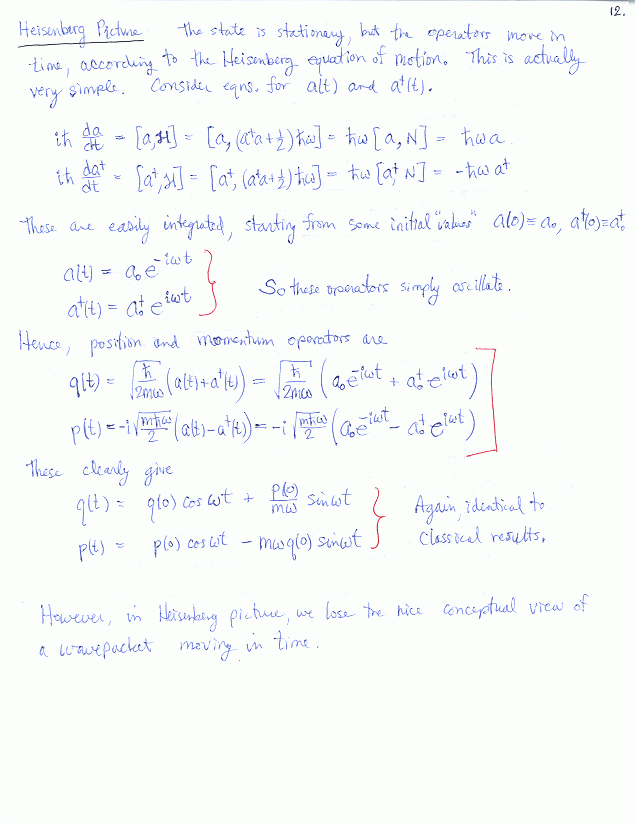 12.
Heisenberg Picture The state is stationary, but the operators move in
time, according to the Heisenberg equation of motion. This is actually
very simple. Consider eqns. for a(t) and a†(t).
iħ da/dt = [a,H] = [a, (a†a+½)ħω] = ħω[a,N] = ħωa
iħ da†/dt = [a†,H] = [a†, (a†a+½)ħω] = ħω[a†,N] = -ħωa†
These are easily integrated, starting from some initial "values" a(0)≡a₀, a†(0)≡a₀†
a(t) = a₀e^{-iωt}
a†(t) = a₀†e^{iωt}
So these operators simply oscillate.
Hence, position and momentum operators are
q(t) = √(ħ/2mω) (a(t)+a†(t)) = √(ħ/2mω) (a₀e^{-iωt} + a₀†e^{iωt})
p(t) = -i√(mħω/2) (a(t)-a†(t)) = -i√(mħω/2) (a₀e^{-iωt} - a₀†e^{iωt})
These clearly give
q(t) = q(0) cos ωt + p(0)/mω sin ωt
p(t) = p(0) cos ωt - mωq(0) sin ωt
Again, identical to
classical results.
However, in Heisenberg picture, we lose the nice conceptual view of
a wavepacket moving in time.